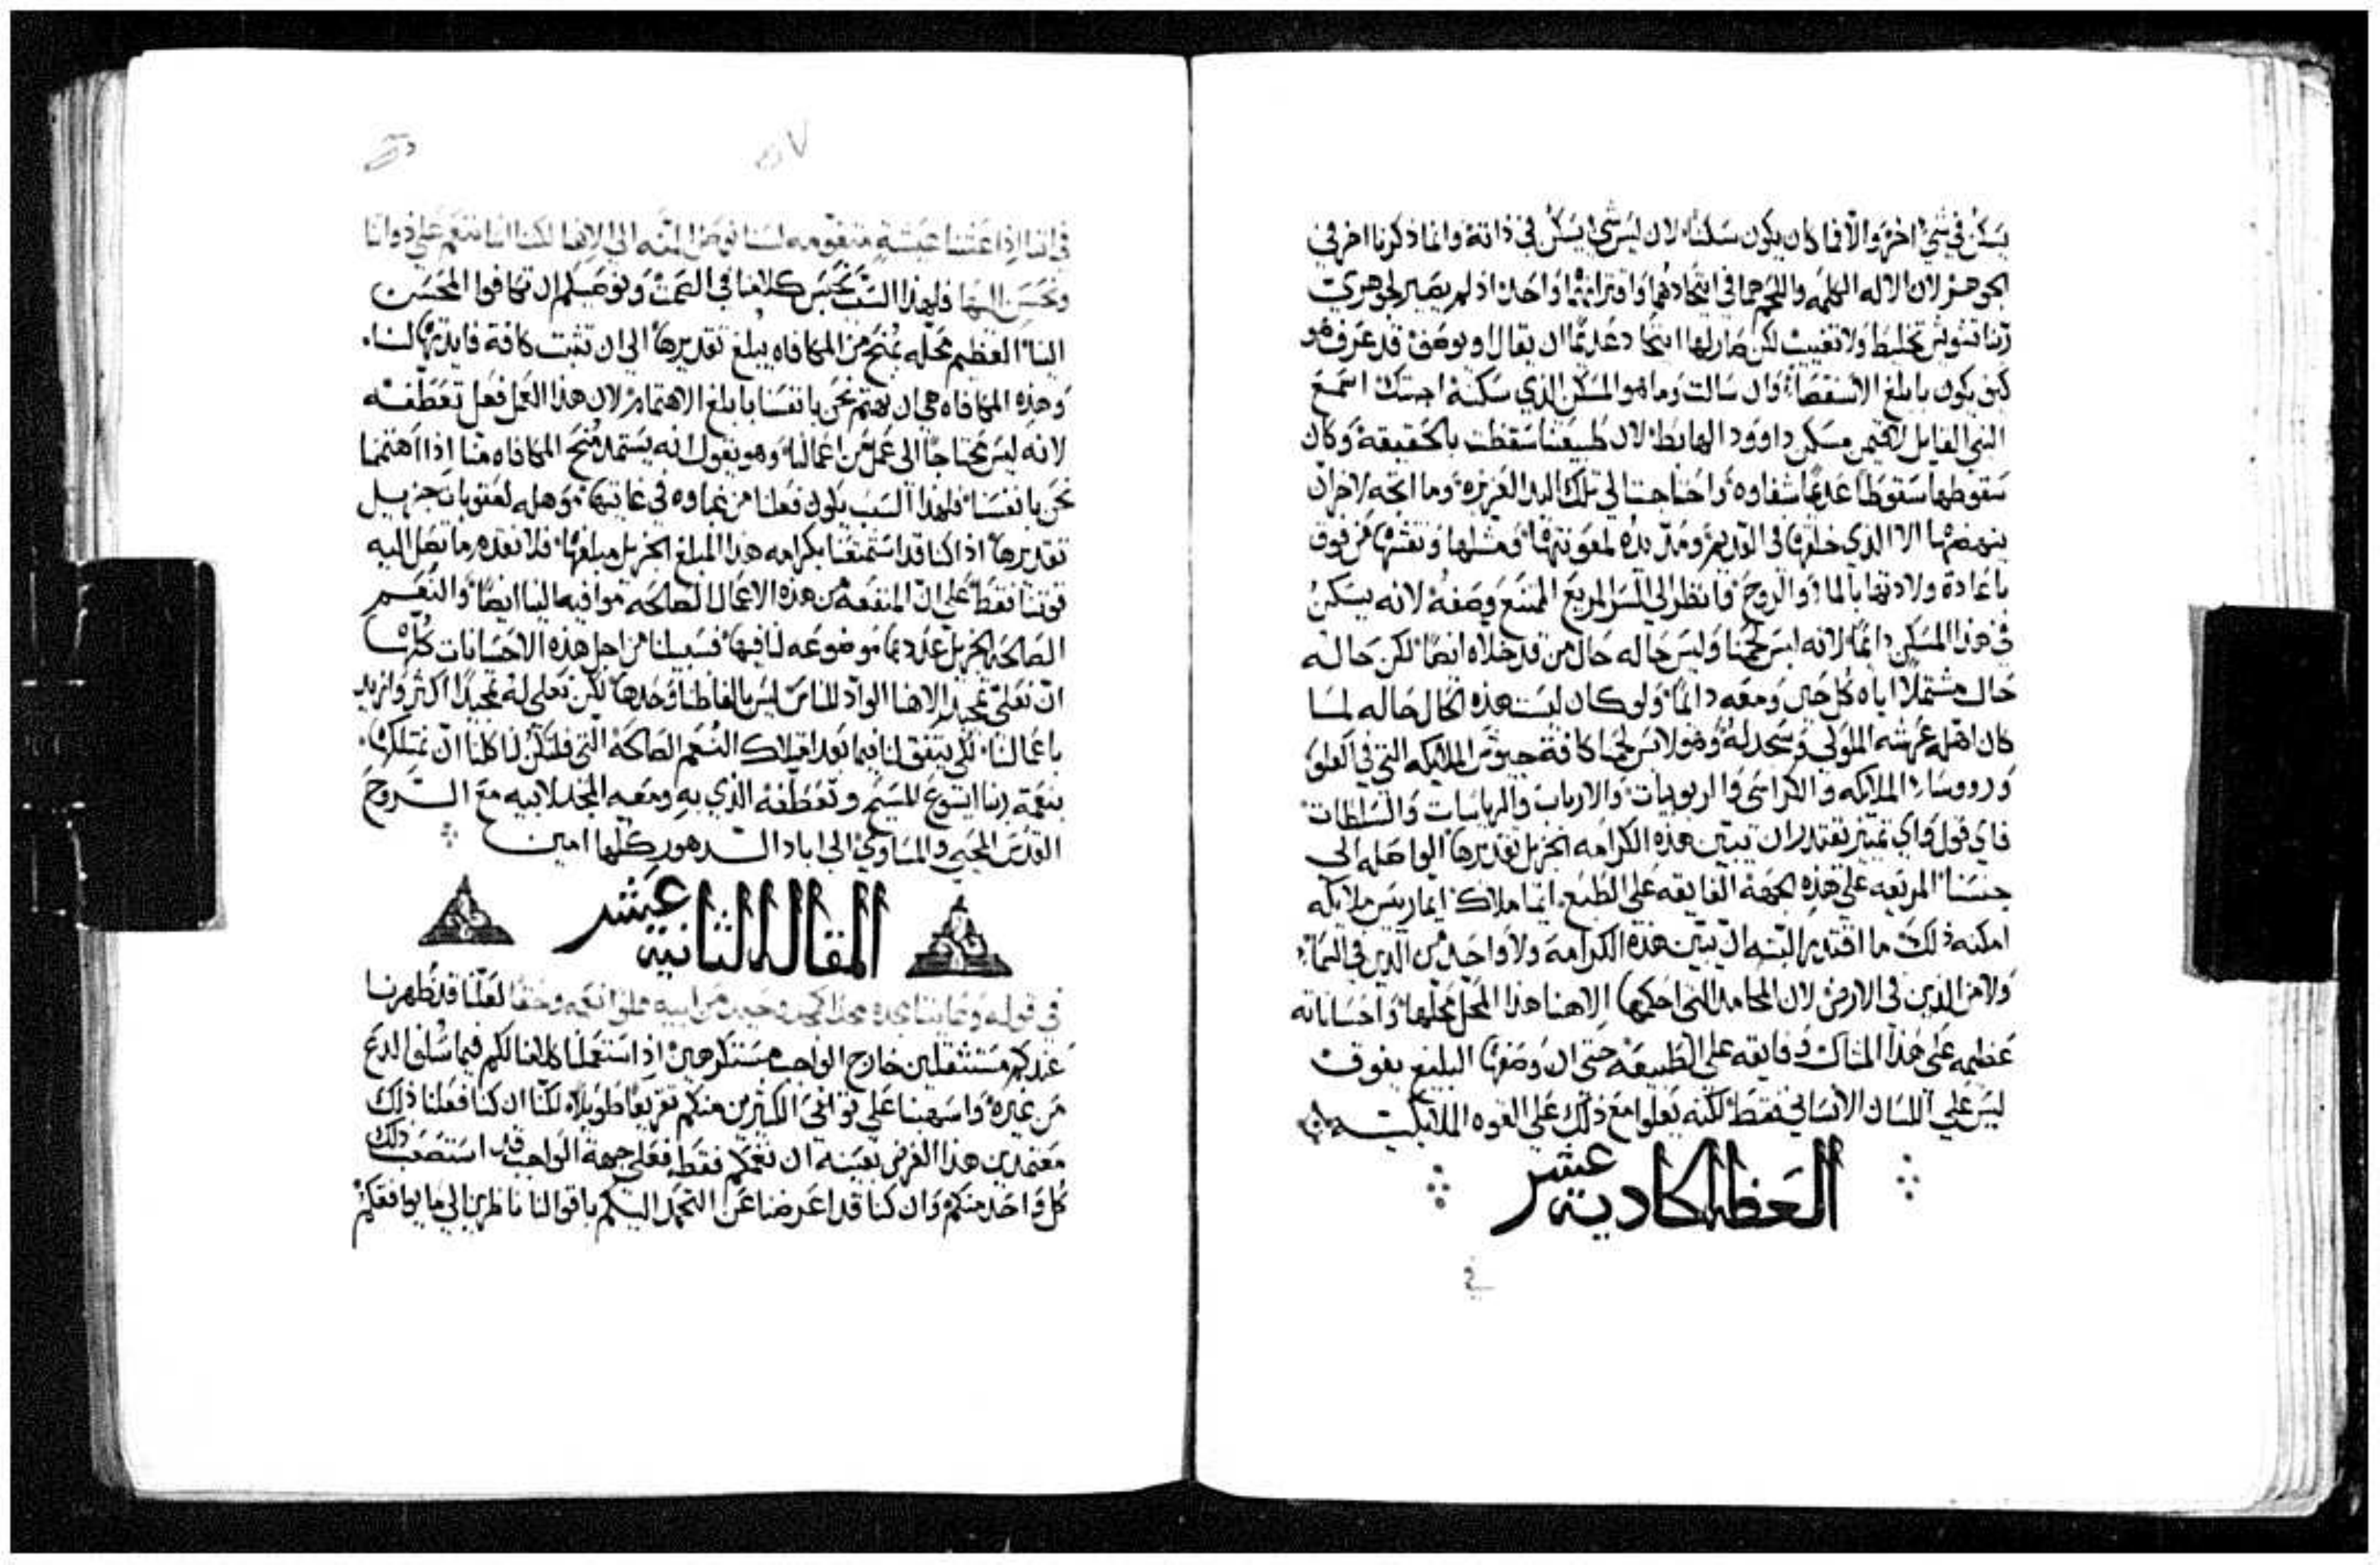 يسكن في شي اخر والا فما كان يكون سكنا لان ليس شي يسكن في ذاته وانما ذكرنا اخر في
الجوهر لان الاله الكلمه واللحم هما في اتحادهما واقترانهما واحد اذ لم يصير لجوهري
ربنا تشويش تخليط ولا تغييب لكن صار لها اتحاد عديما ان يقال او يوصف قد عرف هو
كيف يكون بابلغ الاستقصا وان سالت وما هو المسكن الذي سكنه اجبتك اسمع
النبي القايل لاقيمن مسكن داوود الهابط لان طبيعتنا سقطت بالحقيقة وكان
سقوطها سقوطا عديما شفاوه واحتاجت الي تلك اليد العزيزه وما اتجه لاخر ان
ينهضها الا الذي خلقها في القديم ومد يده لمعونتها ومثلها ونقشها من فوق
باعادة ولادتها بالما والروح فانظر الي السر المريع الممتنع وصفه لانه يسكن
في هذا المسكن دايما لانه لبس لحمنا وليس حاله حال من قد خلاه ايضا لكن حاله
حال مشتملا اياه كل حين ومعه دايما ولو كان ليست هذه الحال حاله لما
كان اهله عرشه الملوكي وسجد له وهو لابس لحمنا كافة جيوش الملايكه التي في العلو
وروسا الملايكه والكراسي والربوبيات والارباب والرياسات والسلطات
فاي قول واي تمييز يقتدر ان يبين هذه الكرامه الجزيل تقديرها الواصله الى
جنسنا المريعه علي هذه الجهة الفايقه علي الطبع ايما ملاك ايما ريس ملايكه
امكنه ذلك ما اقتدر البته ان يبين هذه الكرامه ولا واحد من الذين في السما
ولا من الذين في الارض لان المحامد التي احكمها الاهنا هذا المحل محلها واحساناته
عظيمه علي هذا المثال وفايقه علي الطبيعه حتي ان وصفها البليغ يفوق
ليس علي اللسان الانساني فقط لكنه يعلوا مع ذلك علي القوه الملايكيه
العظه الحاديه عشر
في
في اننا اذا عشنا عيشة متقومه لسنا نوصل المنه الي الاهنا لكننا اننا ننعم علي ذواتنا
ونحسن اليها فلهذا السبب نحبس كلامنا في الصمت ونوصيكم ان تكافوا المحسن
الينا العظيم محله بمنح من المكافاه يبلغ تقديرها الى ان تثبت كافة فايدتها لنا
وهذه المكافاه هي ان نهتم نحن بانفسنا بابلغ الاهتمام لان هذا العمل فعل تعطفه
لانه ليس محتاجا الى عمل من اعمالنا وهو يقول انه يستمد منح المكافاه منا اذا اهتممنا
نحن بانفسنا فلهذا السبب يكون فعلنا من غباوه في غايتها موهله لعقوبات جزيل
تقديرها اذا كنا قد استمتعنا بكرامه هذا المبلغ الجزيل مبلغها فلا نقدم ما تصل اليه
قوتنا فقط علي ان المنفعه من هذه الاعمال الصالحه موافيه الينا ايضا والنعم
الصالحه الجزيل عددها موضوعه لنا فيها فسبيلنا من اجل هذه الاحسانات كلها
ان نعلي تمجيد الاهنا الواد للناس ليس بالفاظنا وحدها لكن نعلي له تمجيدا اكثر وازيد
باعمالنا لكي يتفق لنا فيما بعد امتلاك النعم الصالحة التي فليكن لنا كلنا ان نمتلكها
بنعمة ربنا ايسوع المسيح وتعطفه الذي به ومعه المجد لابيه مع الروح
القدس المحيي والمساوي الى اباد الدهور كلها امين
المقاله الثانيه عشر
في قوله وعاينا مجده مجدا كمجد وحيد من ابيه مملوا نعمه وحقا لعلنا قد ظهرنا
عندكم مستثقلين خارج الواجب مستكرهين اذ استعملنا كلامنا لكم فيما سلف الدع
من غيره واسهبنا علي توافي الكثيرين منكم تقريعا طويلا لكنا ان كنا فعلنا ذلك
معتمدين هذا الغرض بعينه ان نغمكم فقط فعلي جهة الواجب قد استصعب ذلك
كل واحد منكم وان كنا قد اعرضنا عن التحمد اليكم باقوالنا ناظرين الي ما يوافقكم